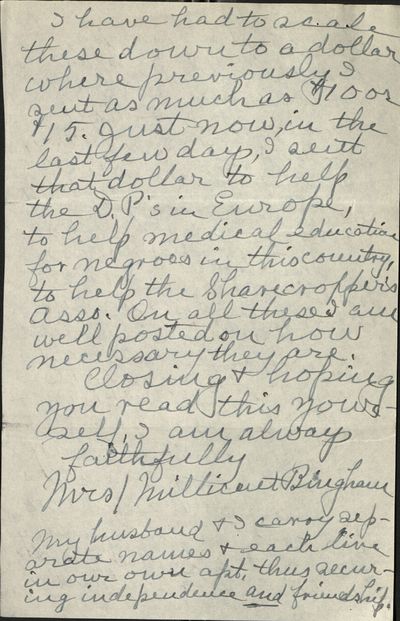 I have had to scale
these down to a dollar
where previously I
sent as much as $10 or
$15. Just now, in the
last few days, I sent
that dollar to help
the D.P.'s in Europe,
to help medical education
for negroes in this country,
to help the Sharecroppers
Asso. On all these I am
well posted on how
necessary they are.
Closing & hoping
you read this your-
self, I am alway
faithfully
Mrs/ Millicent Bingham
My husband & I carry sep-
arate names & each live
in our own apt. thus secur-
ing independence and friendship.